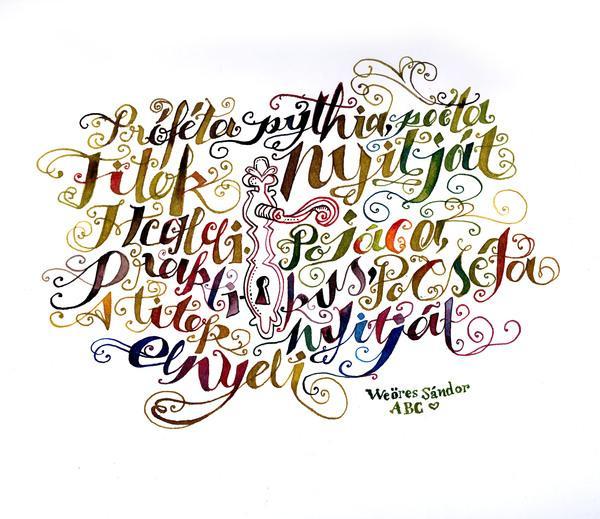 Próféta, pythia, poéta
Titok nyitját
Megleli.
Pojáca,
Prakti-kus, Pocséta
A titok nyitját
elnyeli
Weöres Sándor
ABC